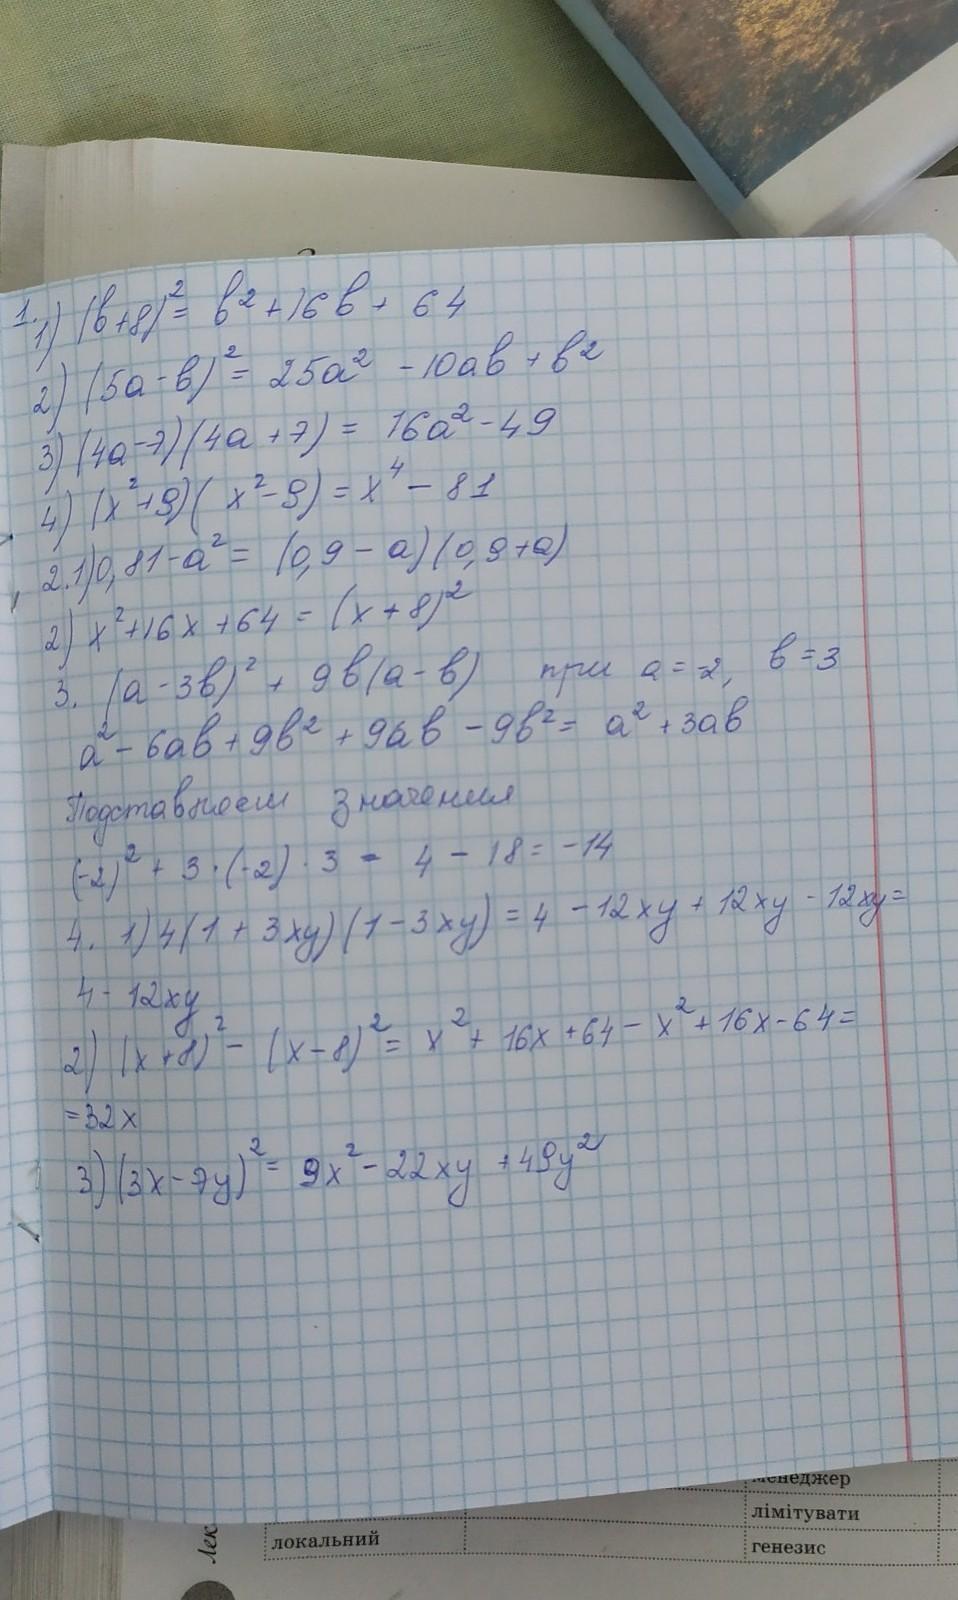 1.
1) (b+8)² = b² + 16b + 64
2) (5a-b)² = 25a² - 10ab + b²
3) (4a-7)(4a+7) = 16a² - 49
4) (x²+9)(x²-9) = x⁴ - 81
2.1) 0,81-a² = (0,9-a)(0,9+a)
2) x²+16x+64 = (x+8)²
3. (a-3b)² + 9b(a-b) при a=-2, b=3
a² - 6ab + 9b² + 9ab - 9b² = a² + 3ab
Подставляем значения
(-2)² + 3·(-2)·3 = 4 - 18 = -14
4. 1) 4(1+3xy)(1-3xy) = 4 - 12xy + 12xy - 12xy =
4 - 12xy
2) (x+8)² - (x-8)² = x² + 16x + 64 - x² + 16x - 64 =
= 32x
3) (3x-7y)² = 9x² - 22xy + 49y²
менеджер
лімітувати
локальний генезис
Лек